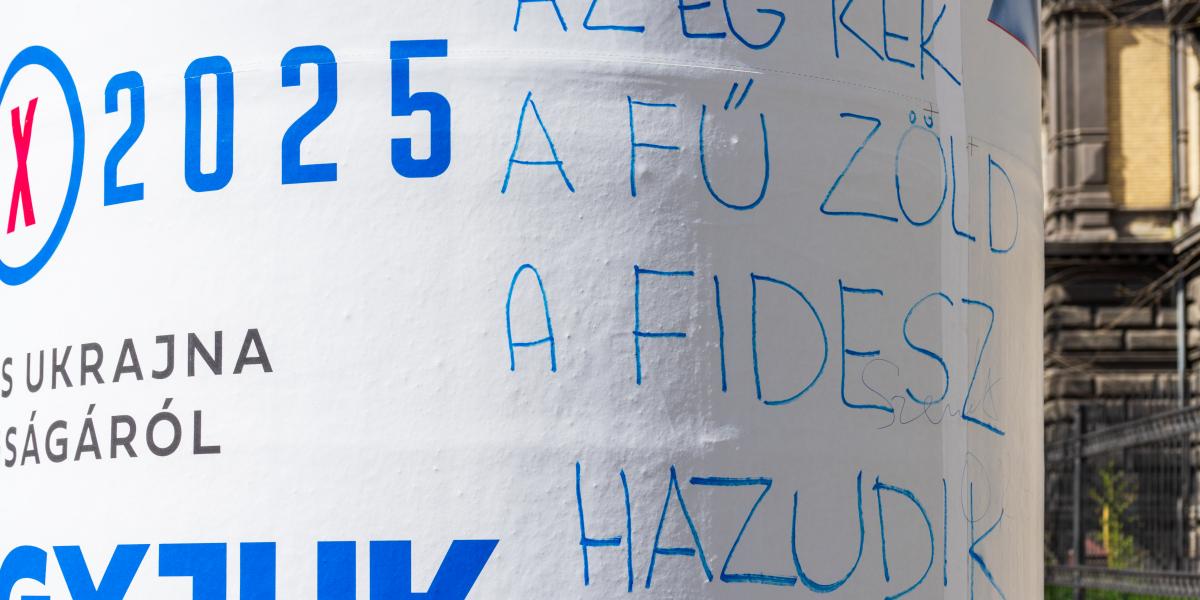 X 2025
S UKRAJNA
SÁGÁRÓL
GYJUK
AZ ÉG KÉK
A FŰ ZÖLD
A FIDESZ
HAZUDIK